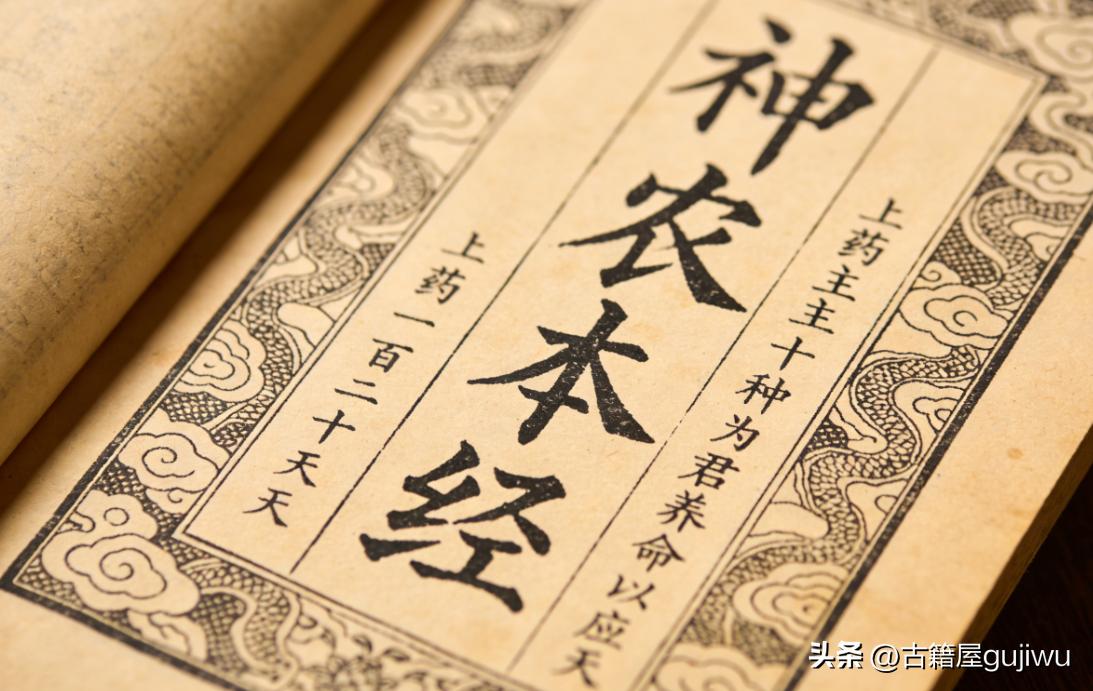 上药主主十种为君养命以应天
神农本经
上药一百二十天天
头条 @古籍屋gujiwu